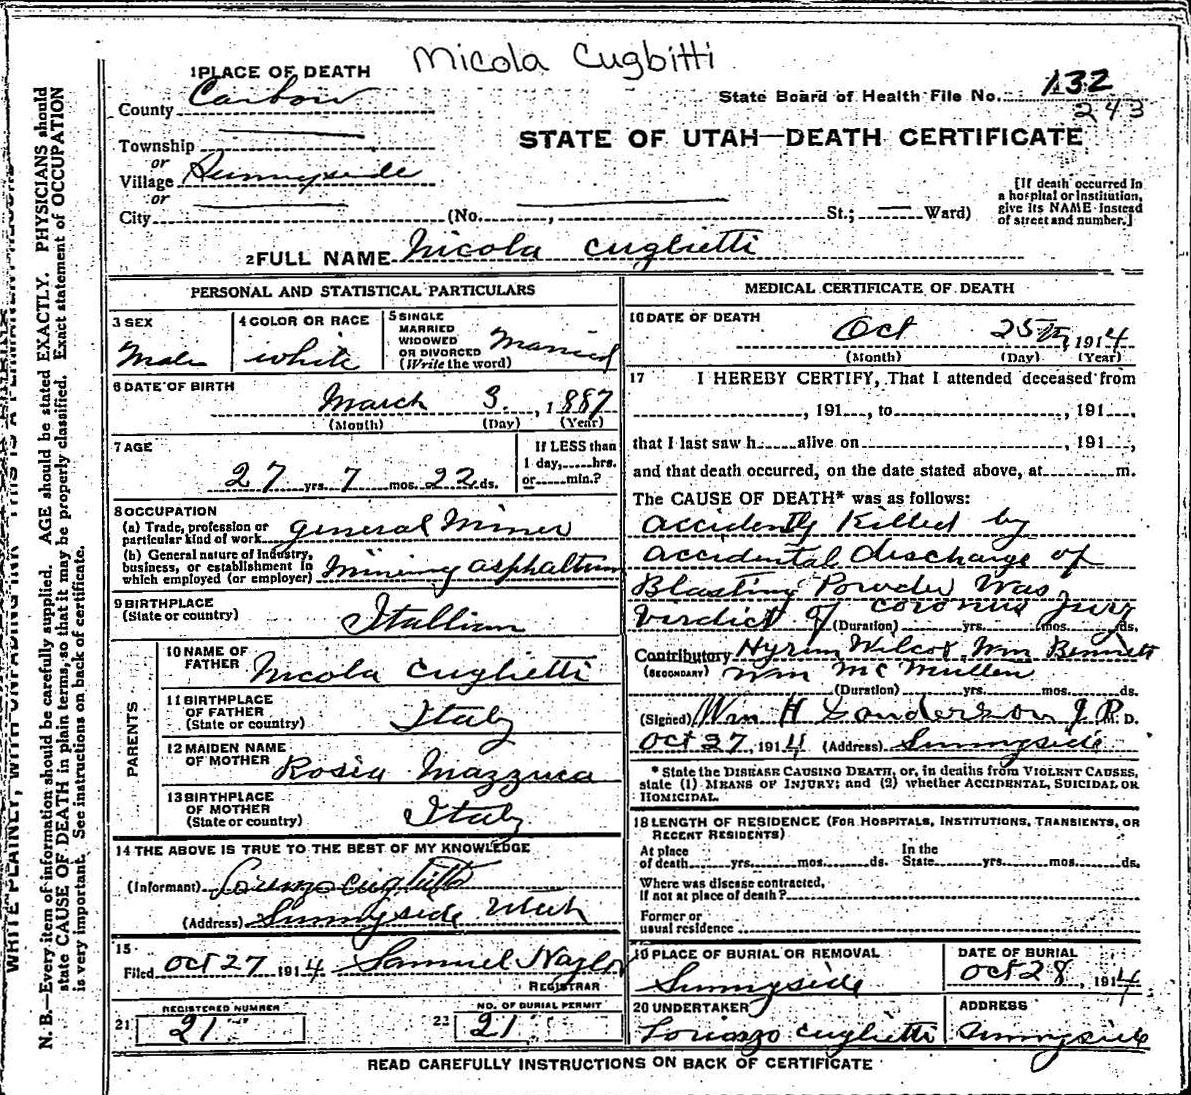 Micola Cugbitti
1 PLACE OF DEATH
County Carbon
State Board of Health File No. 132
243
STATE OF UTAH—DEATH CERTIFICATE
Township
or
Village Sunnyside
or
City (No. , St.; Ward)
[If death occurred in
a hospital or institution,
give its NAME instead
of street and number.]
2 FULL NAME Nicola Cuglietti
PERSONAL AND STATISTICAL PARTICULARS
3 SEX
Male
4 COLOR OR RACE
white
5 SINGLE
MARRIED
WIDOWED
OR DIVORCED
(Write the word)
Married
6 DATE OF BIRTH
March 3. , 1887
(Month) (Day) (Year)
7 AGE
27 yrs. 7 mos. 22 ds.
If LESS than
1 day, hrs.
or min.?
8 OCCUPATION
(a) Trade, profession or
particular kind of work general Miner
(b) General nature of Industry,
business, or establishment in
which employed (or employer) Mining asphaltum
9 BIRTHPLACE
(State or country) Itallian
PARENTS
10 NAME OF
FATHER Nicola Cuglietti
11 BIRTHPLACE
OF FATHER
(State or country) Italy
12 MAIDEN NAME
OF MOTHER Rosia Mazzuca
13 BIRTHPLACE
OF MOTHER
(State or country) Italy
14 THE ABOVE IS TRUE TO THE BEST OF MY KNOWLEDGE
(Informant) Lorenzo Cuglietti
(Address) Sunnyside Utah
15
Filed Oct 27 1914 Samuel Naylor
REGISTRAR
REGISTERED NUMBER
21 21
NO. OF BURIAL PERMIT
22 21
MEDICAL CERTIFICATE OF DEATH
16 DATE OF DEATH
Oct 25th, 1914
(Month) (Day) (Year)
17 I HEREBY CERTIFY, That I attended deceased from
, 191 , to , 191 ,
that I last saw h alive on , 191 ,
and that death occurred, on the date stated above, at m.
The CAUSE OF DEATH* was as follows:
Accidently Killed by
accidental discharge of
Blasting Powder Was
Verdict of coronus jury
(Duration) yrs. mos. ds.
Contributory Hyrum Wilcox, Wm Bennett
(SECONDARY) Wm McMullen
(Duration) yrs. mos. ds.
(Signed) Wm H Sanderson J.P. M. D.
Oct 27, 1914 (Address) Sunnyside
* State the DISEASE CAUSING DEATH, or, in deaths from VIOLENT CAUSES,
state (1) MEANS OF INJURY; and (2) whether ACCIDENTAL, SUICIDAL OR
HOMICIDAL.
18 LENGTH OF RESIDENCE (FOR HOSPITALS, INSTITUTIONS, TRANSIENTS, OR
RECENT RESIDENTS)
At place
of death yrs. mos. ds.
In the
State yrs. mos. ds.
Where was disease contracted,
if not at place of death?
Former or
usual residence
19 PLACE OF BURIAL OR REMOVAL
Sunnyside
DATE OF BURIAL
Oct 28, 1914
20 UNDERTAKER
Lorenzo Cuglietti
ADDRESS
Sunnyside
READ CAREFULLY INSTRUCTIONS ON BACK OF CERTIFICATE
WRITE PLAINLY, WITH UNFADING INK—THIS IS A PERMANENT RECORD
N. B.—Every item of information should be carefully supplied. AGE should be stated EXACTLY. PHYSICIANS should
state CAUSE OF DEATH in plain terms, so that it may be properly classified. Exact statement of OCCUPATION
is very important. See instructions on back of certificate.